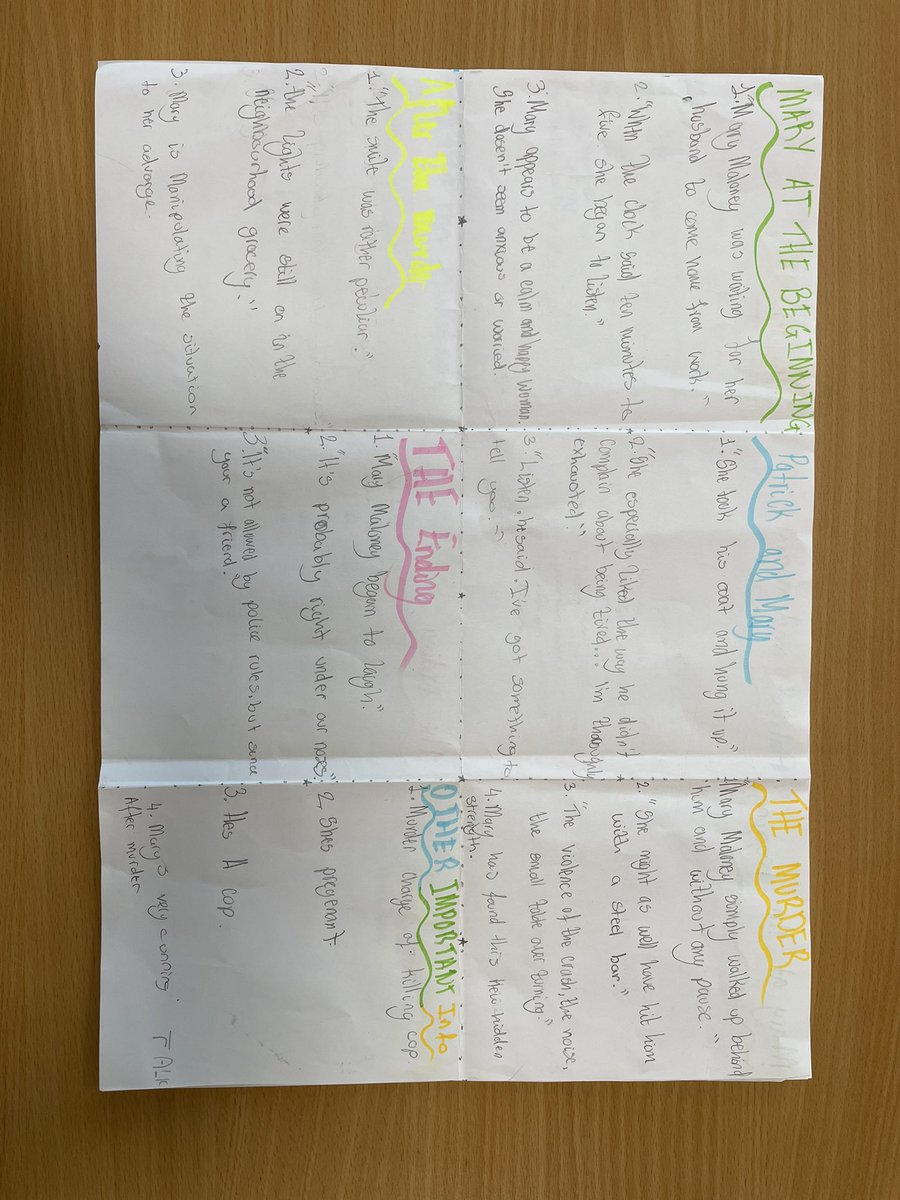 MARY AT THE BEGINNING
1. "Mary Maloney was waiting for her
husband to come home from work."
2. "When the clock said ten minutes to
five she began to listen."
3. Mary appears to be a calm and happy woman.
She doesen't seem anxious or worried.
Patrick and Mary
1. "She took his coat and hung it up."
2. "She especially liked the way he didn't
complain about being tired... I'm thoroughly
exhausted."
3. "Listen, he said. I've got something to
tell you."
THE MURDER
1. "Mary Maloney simply walked up behind
him and without any pause."
2. "She might as well have hit him
with a steel bar."
3. "The violence of the crash, the noise,
the small table over turning."
4. Mary has found this new-hidden
strength.
After the murder
1. "The smile was rather peculiar."
2. "the lights were still on in the
neighbourhood grocery."
3. Mary is Manipulating the situation
to her advange.
THE Ending
1. "Mary Maloney began to laugh."
2. "It's probably right under our noses."
3. "It's not allowed by police rules, but since
your a friend."
OTHER IMPORTANT Info
1. Murder charge of killing cop.
2. Shes pregenant.
3. Hes A cop.
4. Mary's very cunning.
After murder